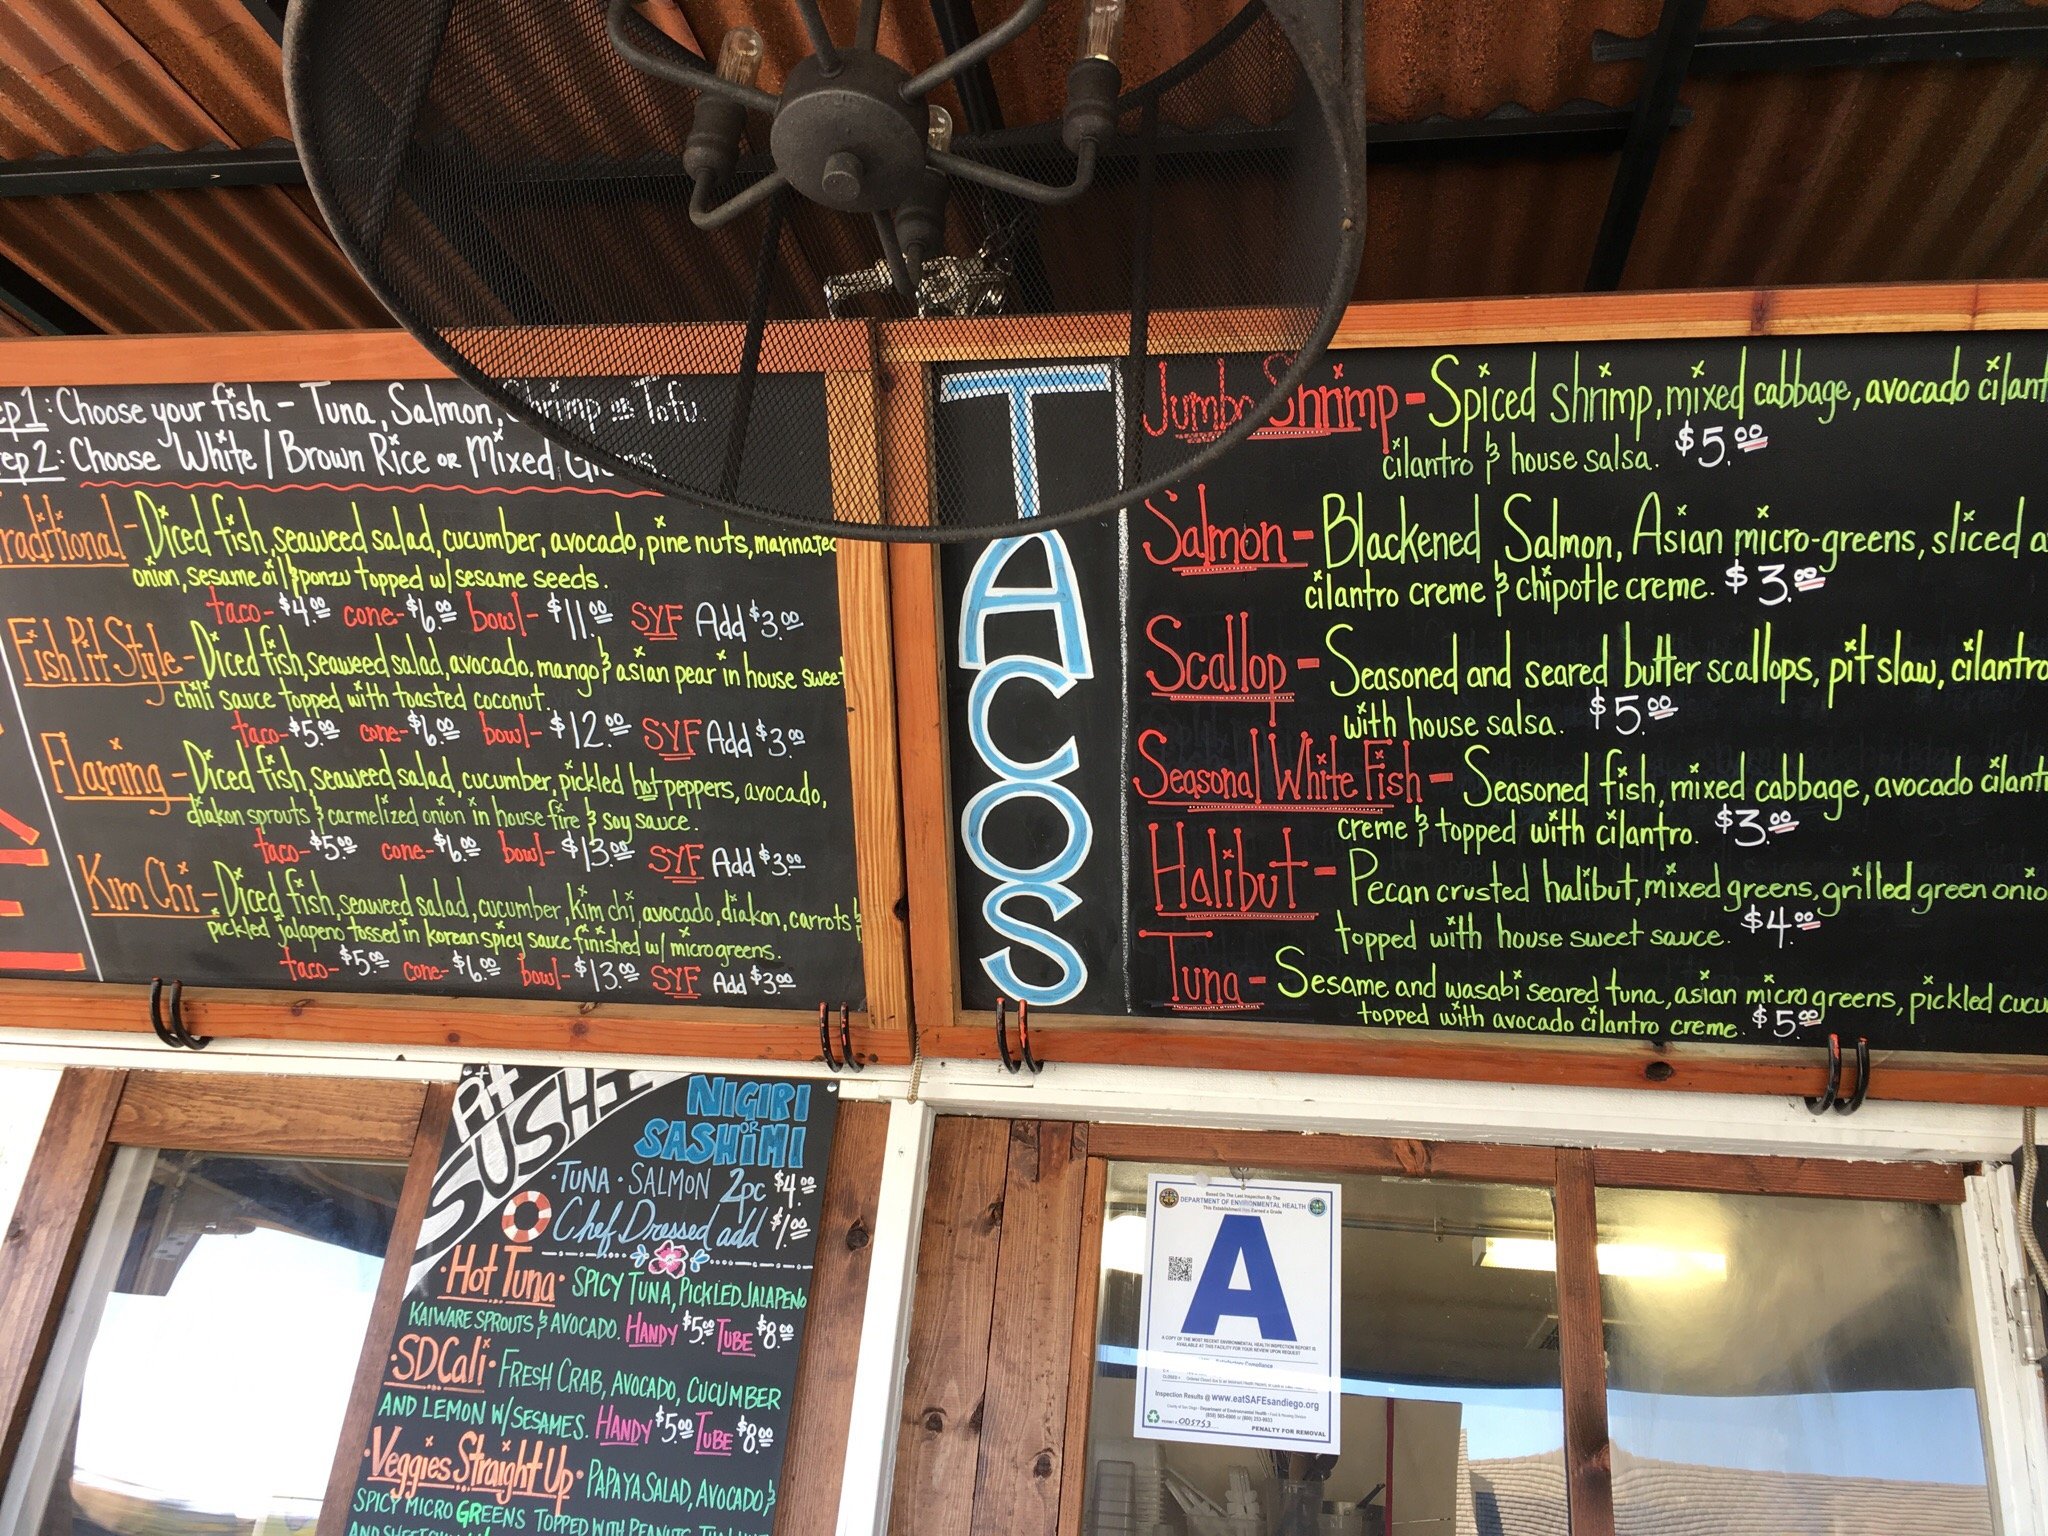 ep1: Choose your fish - Tuna, Salmon, Shrimp or Tofu.
ep2: Choose White / Brown Rice or Mixed Greens
raditional - Diced fish, seaweed salad, cucumber, avocado, pine nuts, marinated
onion, sesame oil & ponzu topped w/ sesame seeds.
taco- $4.00 cone- $6.00 bowl- $11.00 SYF Add $3.00
Fish Pit Style - Diced fish, seaweed salad, avocado, mango & asian pear in house sweet
chili sauce topped with toasted coconut.
taco- $5.00 cone- $6.00 bowl- $12.00 SYF Add $3.00
Flaming - Diced fish, seaweed salad, cucumber, pickled hot peppers, avocado,
diakon sprouts & carmelized onion in house fire & soy sauce.
taco- $5.00 cone- $6.00 bowl- $13.00 SYF Add $3.00
Kim Chi - Diced fish, seaweed salad, cucumber, Kim chi, avocado, diakon, carrots &
pickled jalapeno tossed in korean spicy sauce finished w/ microgreens.
taco- $5.00 cone- $6.00 bowl- $13.00 SYF Add $3.00
TACOS
Jumbo Shrimp - Spiced shrimp, mixed cabbage, avocado cilant
cilantro & house salsa. $5.00
Salmon - Blackened Salmon, Asian micro-greens, sliced a
cilantro creme & chipotle creme. $3.00
Scallop - Seasoned and seared butter scallops, pit slaw, cilantro
with house salsa. $5.00
Seasonal White Fish - Seasoned fish, mixed cabbage, avocado cilant
creme & topped with cilantro. $3.00
Halibut - Pecan crusted halibut, mixed greens, grilled green onio
topped with house sweet sauce. $4.00
Tuna - Sesame and wasabi seared tuna, asian micro greens, pickled cucu
topped with avocado cilantro creme. $5.00
Pit SUSHI
NIGIRI
OR
SASHIMI
• TUNA • SALMON 2pc $4.00
Chef Dressed add $1.00
• Hot Tuna • SPICY TUNA, PICKLED JALAPENO
KAIWARE SPROUTS & AVOCADO. HANDY $5.00 TUBE $8.00
• SD Cali • FRESH CRAB, AVOCADO, CUCUMBER
AND LEMON W/ SESAMES. HANDY $5.00 TUBE $8.00
• Veggies Straight Up • PAPAYA SALAD, AVOCADO &
SPICY MICRO GREENS TOPPED WITH PEANUTS,
Based On The Last Inspection By The
DEPARTMENT OF ENVIRONMENTAL HEALTH
This Establishment Has Earned a Grade
A
A COPY OF THE MOST RECENT ENVIRONMENTAL HEALTH INSPECTION REPORT IS
AVAILABLE AT THIS FACILITY FOR YOUR REVIEW UPON REQUEST
Satisfactory Compliance
Inspection Results @ www.eatSAFEsandiego.org
County of San Diego • Department of Environmental Health • Food & Housing Division
PERMIT # 005753
PENALTY FOR REMOVAL